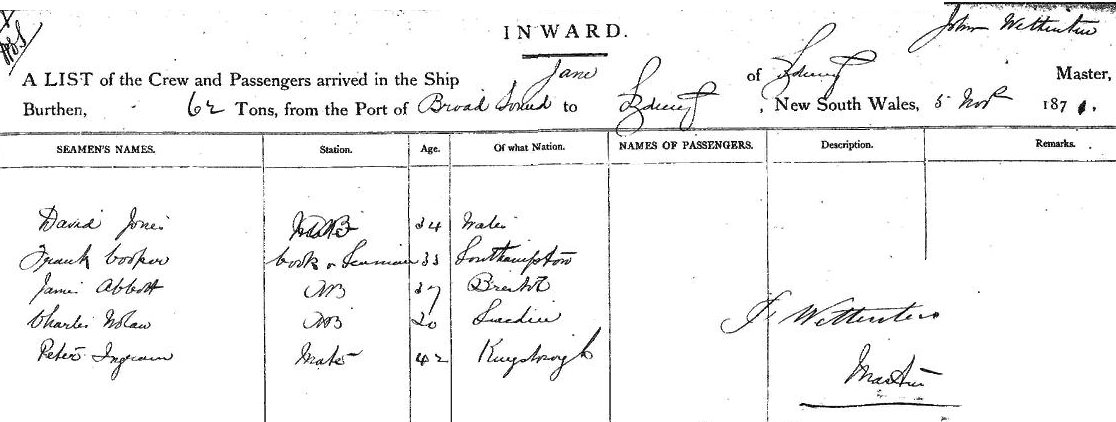 INWARD.
John Wettenten
A LIST of the Crew and Passengers arrived in the Ship Jane of Sydney Master,
Burthen, 62 Tons, from the Port of Broad Sound to Sydney, New South Wales, 5 Novr 1871.
SEAMEN'S NAMES. Station. Age. Of what Nation. NAMES OF PASSENGERS. Description. Remarks.
David Jones 34 Wales
Frank Cooper Cook & Seaman 33 Southampton
James Abbott AB 37
Charles Nolan AB 20
Peter Ingram Mate 42
J Wettenten
Master